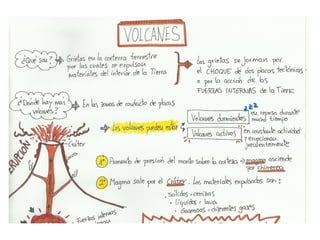 VOLCANES
¿Qué son?
Grietas en la corteza terrestre
por las cuales se expulsan
materiales del interior de la Tierra
Las grietas se forman por
el CHOQUE de dos placas tectónicas
o por la acción de las
FUERZAS INTERNAS de la Tierra
¿Dónde hay más
volcanes?
En las zonas de contacto de placas
Los volcanes pueden estar
Volcanes dormidos
en reposo durante
mucho tiempo
Volcanes activos
en constante actividad
y erupcionan
frecuentemente
ERUPCIÓN
Cráter
1º Aumento de presión del manto sobre la corteza → magma asciende
por chimenea
2º Magma sale por el cráter. Los materiales expulsados son:
· sólidos = cenizas
· líquidos = lava
· gaseosos = diferentes gases
Fuerzas internas